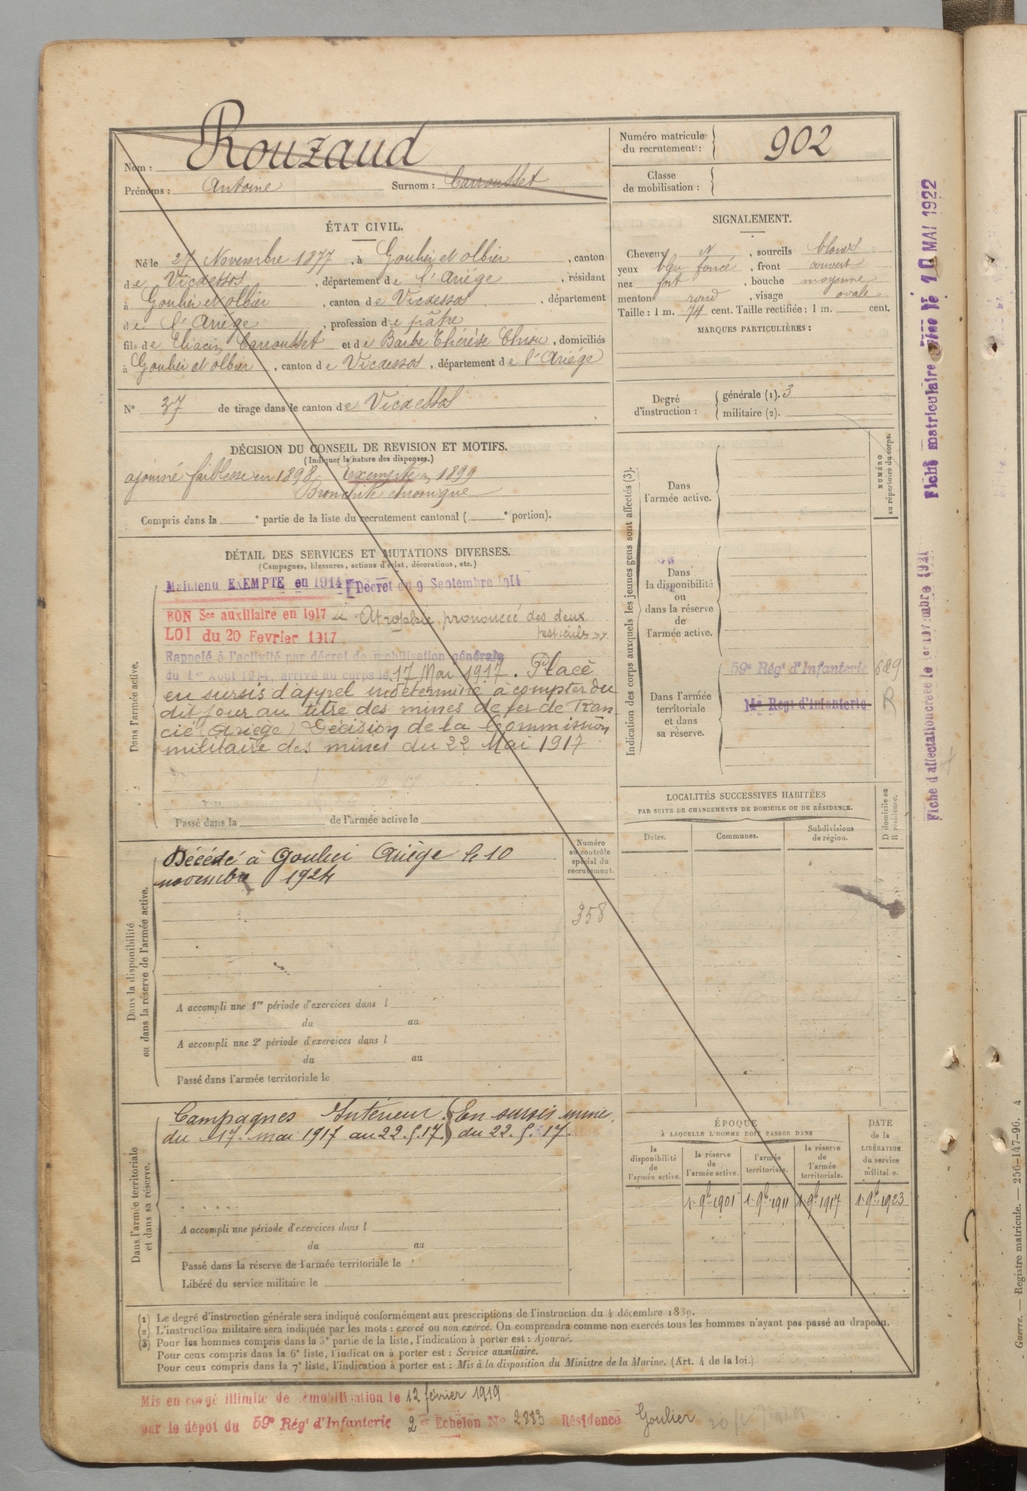 Nom : Rouzaud
Prénoms : Antoine Surnom : Carrousset
Numéro matricule du recrutement : 902
Classe de mobilisation :
ÉTAT CIVIL.
Né le 27 Novembre 1877, à Goulier et olbier, canton
de Vicdessos, département de l'Ariège, résidant
à Goulier et olbier, canton de Vicdessos, département
de l'Ariège, profession de pâtre
fils de Eliacin Carrousset et de Barbe Thérèse, domiciliés
à Goulier et olbier, canton de Vicdessos, département de l'Ariège
N° 37 de tirage dans le canton de Vicdessos
SIGNALEMENT.
Cheveux N, sourcils blonds
yeux bleu foncé, front couvert
nez fort, bouche moyenne
menton rond, visage ovale
Taille : 1 m. 74 cent. Taille rectifiée : 1 m. cent.
MARQUES PARTICULIÈRES :
Degré d'instruction : générale (1). 3
militaire (2).
DÉCISION DU CONSEIL DE REVISION ET MOTIFS.
(Indiquer la nature des dispenses.)
ajourné faiblesse en 1898 Exempté en 1899
Bronchite chronique
Compris dans la e partie de la liste du recrutement cantonal ( e portion).
DÉTAIL DES SERVICES ET MUTATIONS DIVERSES.
(Campagnes, blessures, actions d'éclat, décorations, etc.)
Dans l'armée active.
Maintenu EXEMPTE en 1914 Décret du 9 Septembre 1914
BON Sce auxiliaire en 1917 Atrophie prononcée des deux
LOI du 20 Février 1917 testicules
Rappelé à l'activité par décret de mobilisation générale
du 1er Août 1914, arrivé au corps le 17 Mai 1917. Placé
en sursis d'appel indéterminé à compter du
dit jour au titre des mines de fer de Ran
cié (Ariège) Décision de la Commission
militaire des mines du 22 Mai 1917
Passé dans la de l'armée active le
Indication des corps auxquels les jeunes gens sont affectés (3).
NUMÉRO au répertoire du corps.
Dans l'armée active.
Dans la disponibilité ou dans la réserve de l'armée active.
Dans l'armée territoriale et dans sa réserve.
59e Régt d'Infanterie 649
Régt d'Infanterie R
Fiche matricultaire 10 MAI 1922
Fiche d'affectation créée le 1er septembre 1921
LOCALITÉS SUCCESSIVES HABITÉES
PAR SUITE DE CHANGEMENTS DE DOMICILE OU DE RÉSIDENCE.
Dates. Communes. Subdivisions de région. D domicile ou R résidence.
Dans la disponibilité ou dans la réserve de l'armée active.
Décédé à Goulier Ariège le 10
novembre 1924
Numéro au contrôle spécial du recrutement.
358
A accompli une 1re période d'exercices dans l
du au
A accompli une 2e période d'exercices dans l
du au
Passé dans l'armée territoriale le
Dans l'armée territoriale et dans sa réserve.
Campagnes Intérieur En sursis mine
du 17 mai 1917 au 22.5.17. du 22.5.17.
A accompli une période d'exercices dans l
du au
Passé dans la réserve de l'armée territoriale le
Libéré du service militaire le
ÉPOQUE
À LAQUELLE L'HOMME DOIT PASSER DANS
la disponibilité de l'armée active. la réserve de l'armée active. l'armée territoriale. la réserve de l'armée territoriale. DATE de la LIBÉRATION du service militaire.
1er 9bre 1901 1er 9bre 1911 1er 9bre 1917 1er 9bre 1923
(1) Le degré d'instruction générale sera indiqué conformément aux prescriptions de l'instruction du 4 décembre 1889.
(2) L'instruction militaire sera indiquée par les mots : exercé ou non exercé. On comprendra comme non exercés tous les hommes n'ayant pas passé au drapeau.
(3) Pour les hommes compris dans la 5e partie de la liste, l'indication à porter est : Ajourné.
Pour ceux compris dans la 6e liste, l'indication à porter est : Service auxiliaire.
Pour ceux compris dans la 7e liste, l'indication à porter est : Mis à la disposition du Ministre de la Marine. (Art. 4 de la loi.)
Mis en congé illimité de démobilisation le 12 février 1919
par le dépôt du 59e Régt d'Infanterie 2e Echelon N° 2883 Résidence Goulier
Guerre. — Registre matricule. — 256-147-96. 4